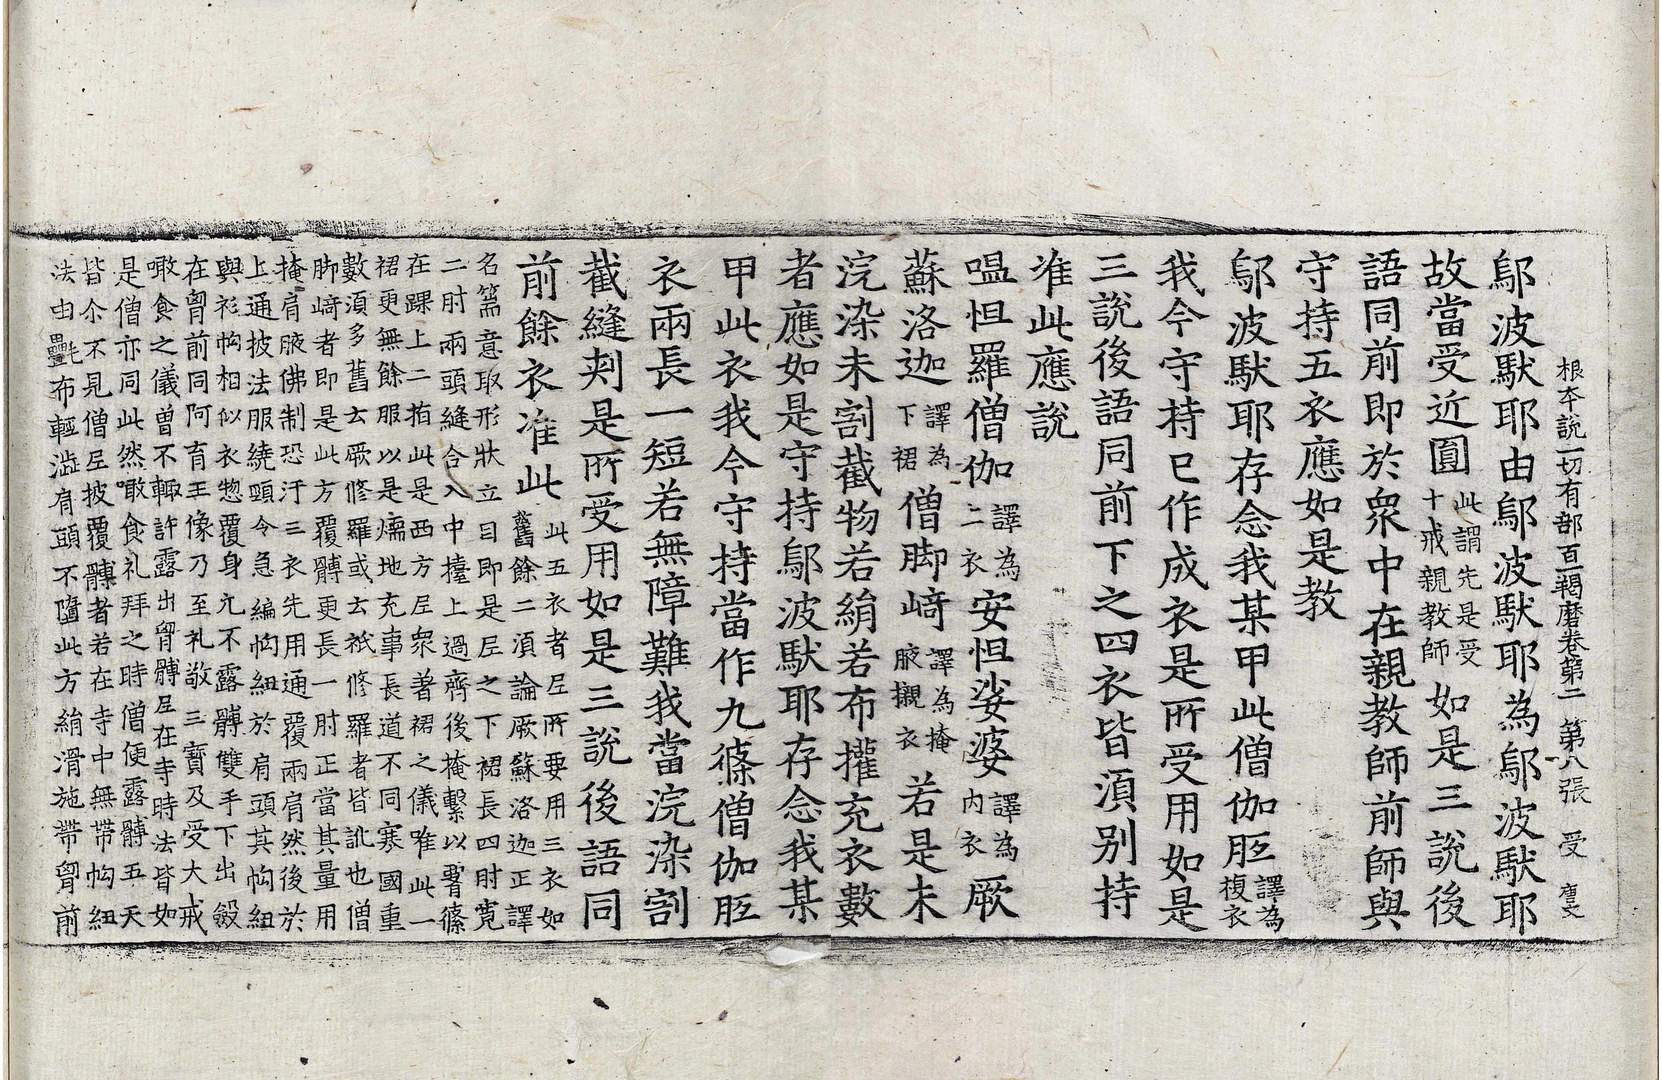 根本說一切有部百一羯磨卷第二 第八張 受
鄔波馱耶由鄔波馱耶為鄔波馱耶
故當受近圓此謂先是受十戒親教師如是三說後
語同前即於衆中在親教師前師與
守持五衣應如是教
鄔波馱耶存念我某甲此僧伽胝譯為複衣
我今守持已作成衣是所受用如是
三說後語同前下之四衣皆須別持
准此應說
嗢怛羅僧伽譯為二衣安怛娑婆譯為內衣厥
蘇洛迦譯為下裙僧脚崎譯為掩腋襯衣若是未
浣染未割截物若絹若布擬充衣數
者應如是守持鄔波馱耶存念我某
甲此衣我今守持當作九條僧伽胝
衣兩長一短若無障難我當浣染割
截縫刾是所受用如是三說後語同
前餘衣准此此五衣者尼所要用三衣如舊餘二須論厥蘇洛迦正譯
名篅意取形狀立目即是尼之下裙長四肘寛
二肘兩頭縫合入中擡上過齊後掩繫以腰絛
在踝上二指此是西方尼衆著裙之儀唯此一
裙更無餘服以是煗地充事長道不同寒國重
數須多舊云厥修羅或云祇修羅者皆訛也僧
脚崎者即是此方覆髆更長一肘正當其量用
掩肩腋佛制恐汙三衣先用通覆兩肩然後於
上通披法服繞頸令急編㡚紐於肩頭其㡚紐
與衫㡚相似衣惣覆身元不露髆雙手下出斂
在胷前同阿育王像乃至礼敬三寶及受大戒
噉食之儀曾不輙許露出胷髆尼在寺時法皆如
是僧亦同此然噉食礼拜之時僧便露髆五天
皆尒不見僧尼披覆髆者若在寺中無帶㡚紐
法由㲲布輕澁肩頭不墮此方絹滑施帶胷前